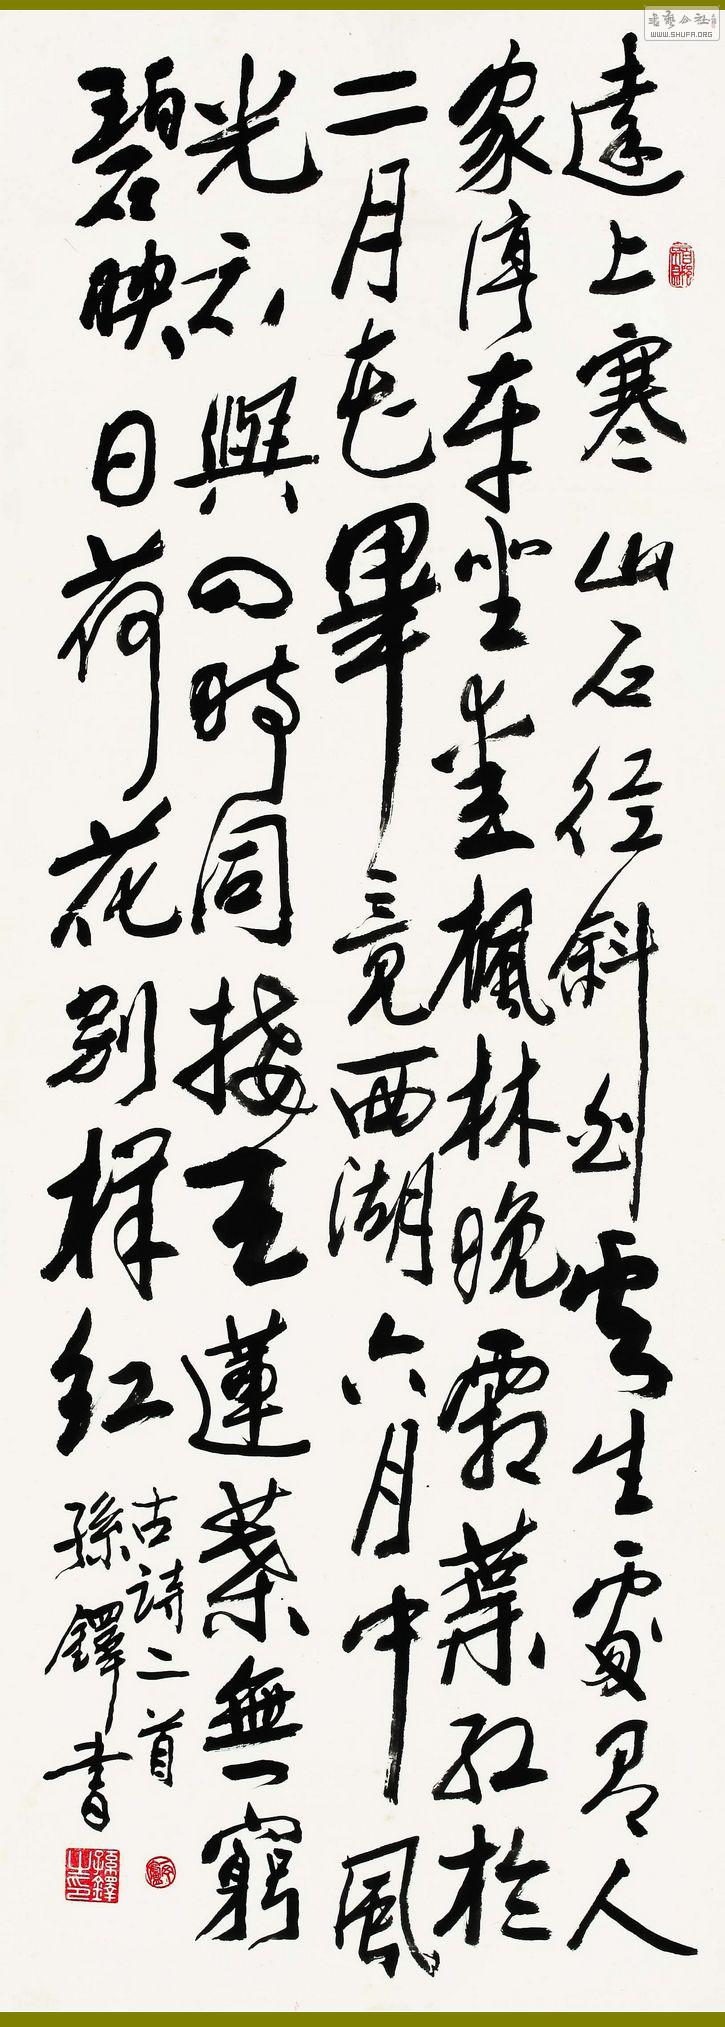 遠上寒山石径斜白雲生處有人
家停車坐愛楓林晚霜葉紅於
二月花畢竟西湖六月中風
光不與四時同接天蓮葉無窮
碧映日荷花别樣紅
古詩二首
孫鐸書
孫鐸之印
書藝公社
WWW.SHUFA.ORG